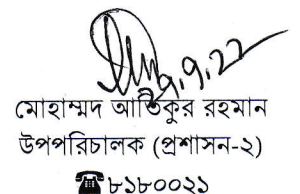 ৭.৭.২২
মোহাম্মদ আতিকুর রহমান
উপপরিচালক (প্রশাসন-২)
☎৮১৮০০২১